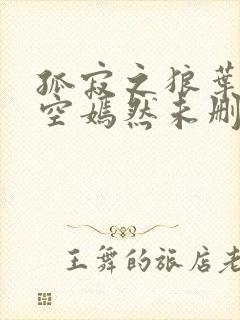 孤寂之狼葉
空嫣然未刪
王舞的旅店老